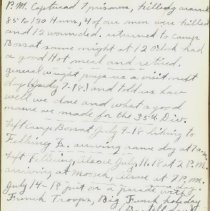 P.M. Captured 7 prisoners, killed & wound
85 to 130 Huns, 4 of our men were killed
and 12 wounded, returned to camp
Bosat same night at 12 O'clock had
a good Hot meal and retired.
general wright pays us a visit next
day July 7-18) and told us how
well we done and what a good
name we made for the 35th Div.
left Camp Bosat July 9-18 hiking to
Felling Ge, arriving same day at
left Felling Place July 14/18 at 2 P.M.
arriving at Moosch, same at 7 P.M.
July 14-18 put on a parade with
French Troops, Big French holiday